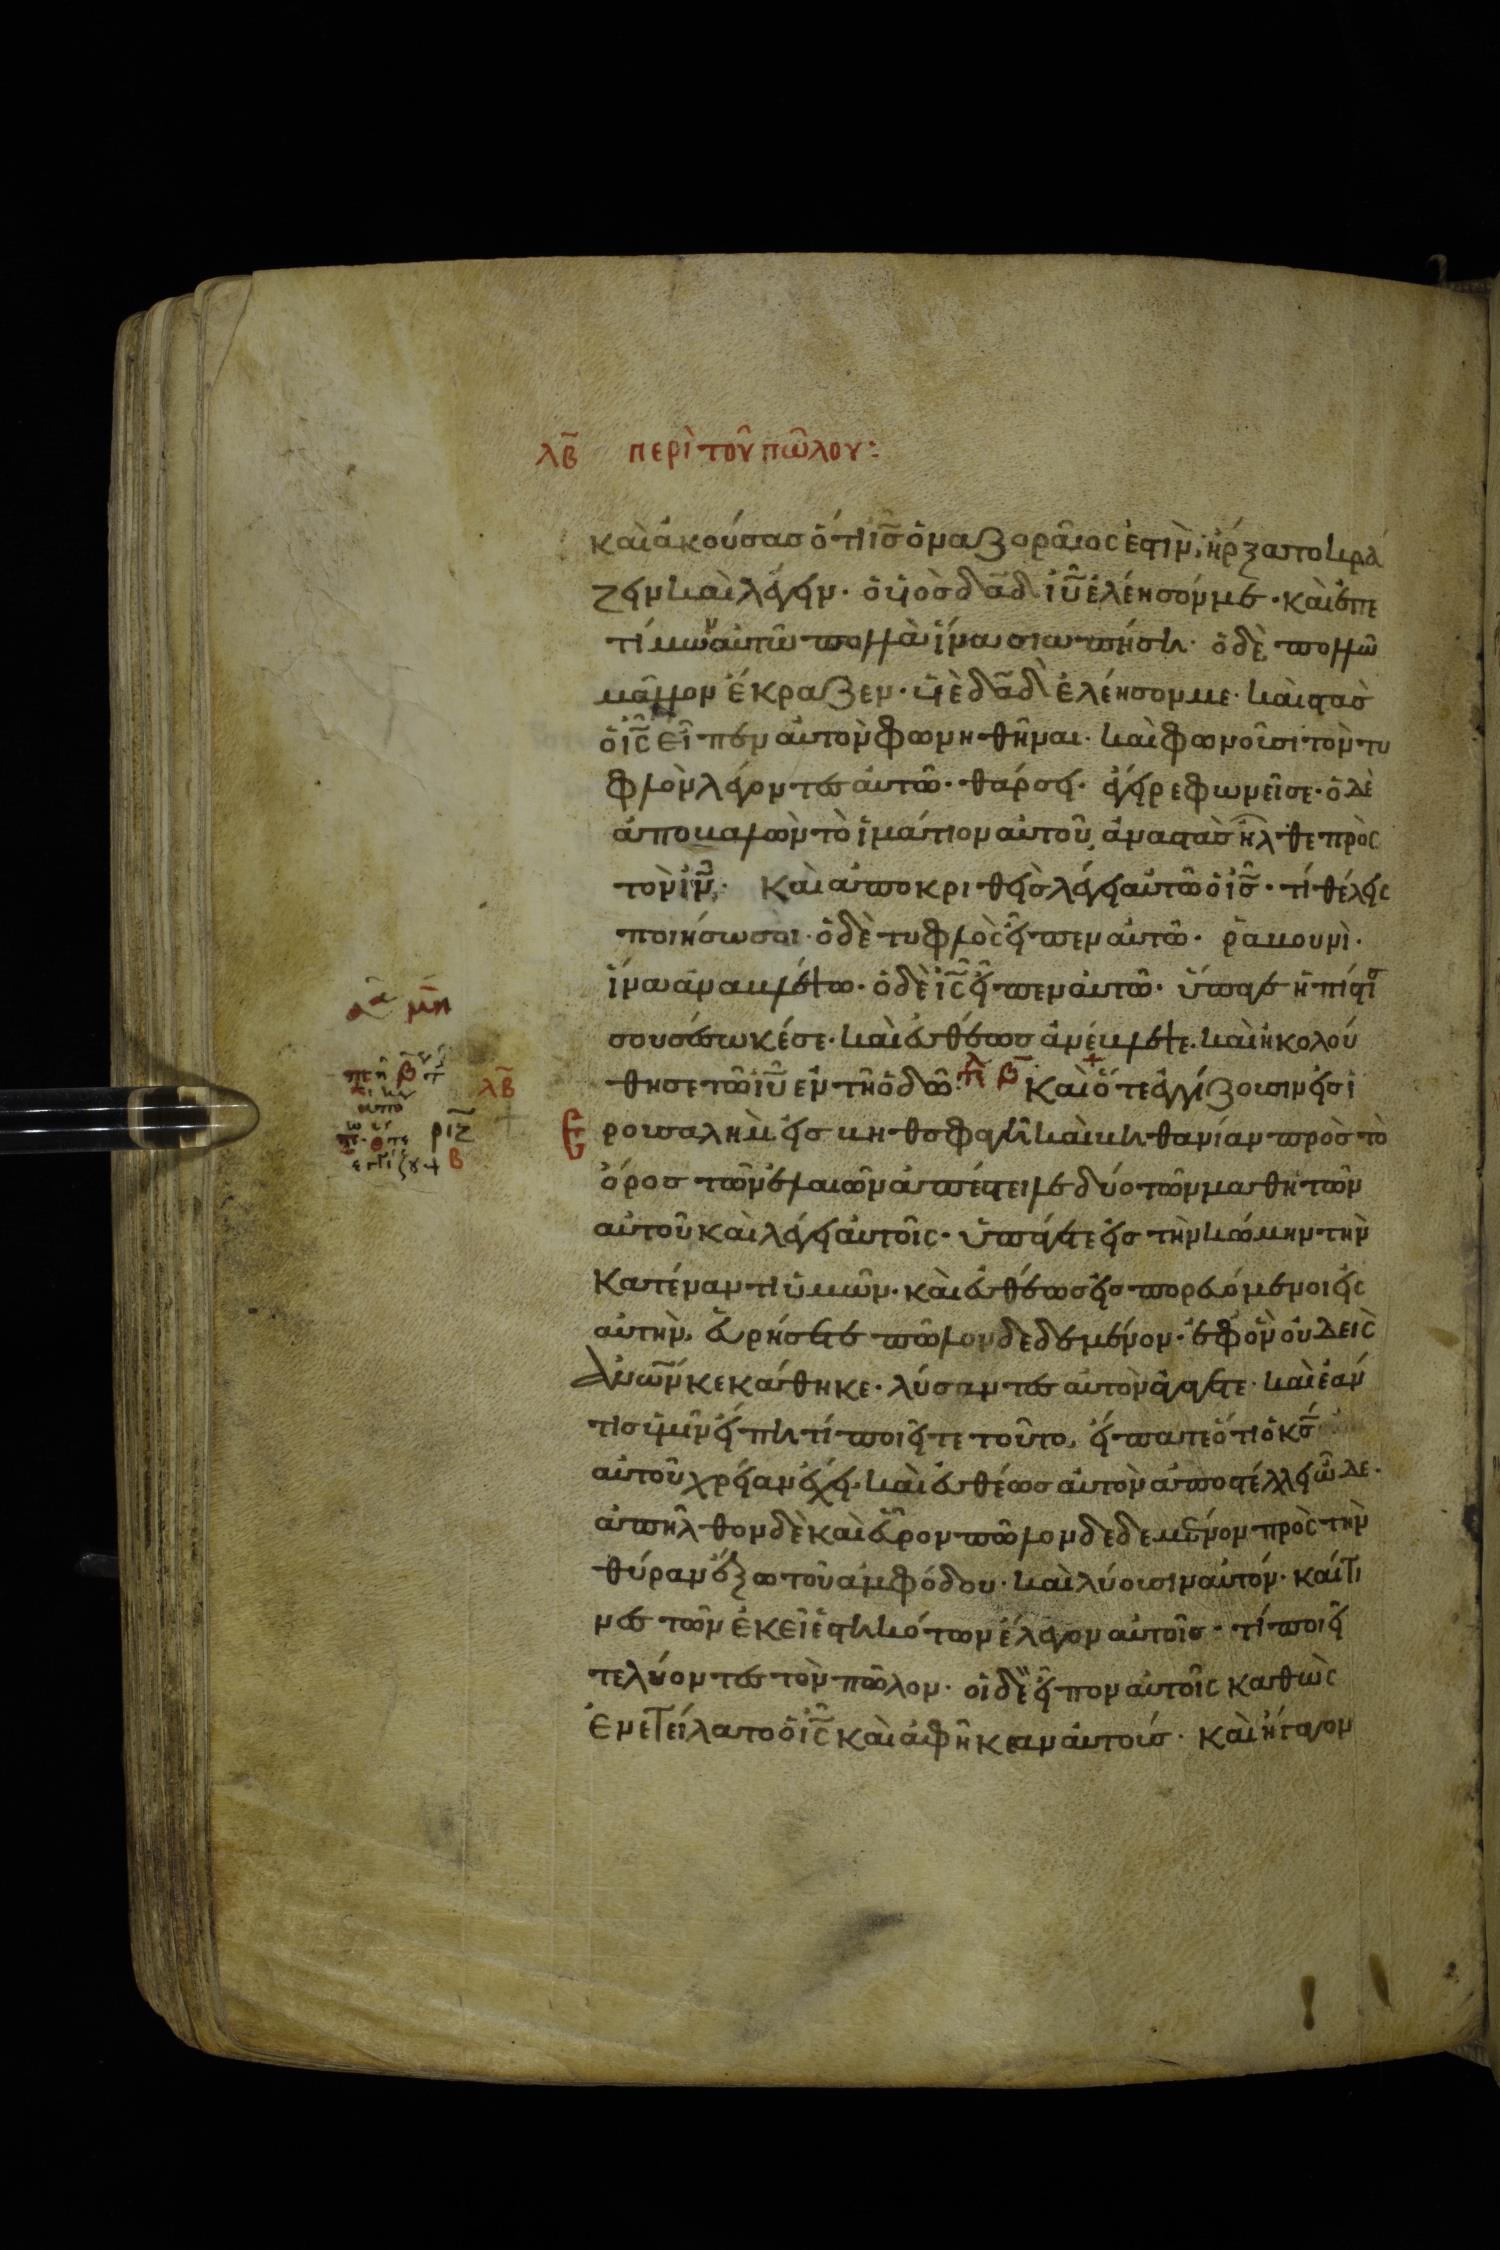 λβ περὶ τοῦ πώλου:
καὶ ἀκούσας ὅτι ις ὁ ναζοραῖος ἐστὶν, ἤρξατο κρά
ζειν καὶ λέγειν· ὁ υἱὸς δαδ ιυ ἐλέησόν με· καὶ ἐπε
τίμων αὐτῶ πολλὰ ἵνα σιωπήση· ὁ δὲ πολλῶ
μᾶλλον ἔκραζεν· υἱὲ δαδ ἐλέησον με· καὶ στὰς
ὁ ις εἶπεν αὐτὸν φωνηθῆναι· καὶ φωνοῦσι τὸν τυ
φλὸν λέγοντες αὐτῶ· θάρσει· ἔγειρε φωνεῖ σε· ὁ δὲ
ἀποβαλὼν τὸ ἱμάτιον αὐτοῦ, ἀναστὰς ἦλθε πρὸς
τὸν ιν· Καὶ ἀποκριθεὶς λέγει αὐτῶ ὁ ις· τί θέλεις
ποιήσω σοι· ὁ δὲ τυφλὸς εἶπεν αὐτῶ· ῥαβουνὶ·
ἵνα ἀναβλέψω· ὁ δὲ ις εἶπεν αὐτῶ· ὕπαγε ἡ πίστις
σου σέσωκέ σε· καὶ εὐθέως ἀνέβλεψε· καὶ ἠκολού
θησε τῶ ιυ ἐν τῆ ὁδῶ· Καὶ ὅτε ἐγγίζουσιν εἰς ἱ
ρουσαλὴμ εἰς βηθσφαγὴ καὶ βηθανίαν πρὸς τὸ
ὄρος τῶν ἐλαιῶν ἀπέστειλε δύο τῶν μαθητῶν
αὐτοῦ καὶ λέγει αὐτοῖς· ὑπάγετε εἰς τὴν κώμην τὴν
κατέναντι ὑμῶν· καὶ εὐθέως εἰσπορευόμενοι εἰς
αὐτὴν, εὑρήσετε πῶλον δεδεμένον· ἐφ ὃν οὐδεὶς
ανων κεκάθηκε· λύσαντες αὐτὸν ἀγάγετε· καὶ ἐάν
τις ὑμῖν εἴπη τί ποιεῖτε τοῦτο, εἴπατε ὅτι ὁ κς
αὐτοῦ χρείαν ἔχει· καὶ εὐθέως αὐτὸν ἀποστέλλει ὧδε·
ἀπῆλθον δὲ καὶ εὗρον πῶλον δεδεμένον πρὸς τὴν
θύραν ἔξω τοῦ ἀμφόδου· καὶ λύουσιν αὐτόν· καί τι
νες τῶν ἐκεῖ ἑστηκότων ἔλεγον αὐτοῖς· τί ποιεῖ
τε λύοντες τὸν πῶλον· οἱ δὲ εἶπον αὐτοῖς καθὼς
ἐνετείλατο ὁ ις καὶ ἀφῆκαν αὐτοίς· καὶ ἤγαγον
μη
λβ
ριζ
β